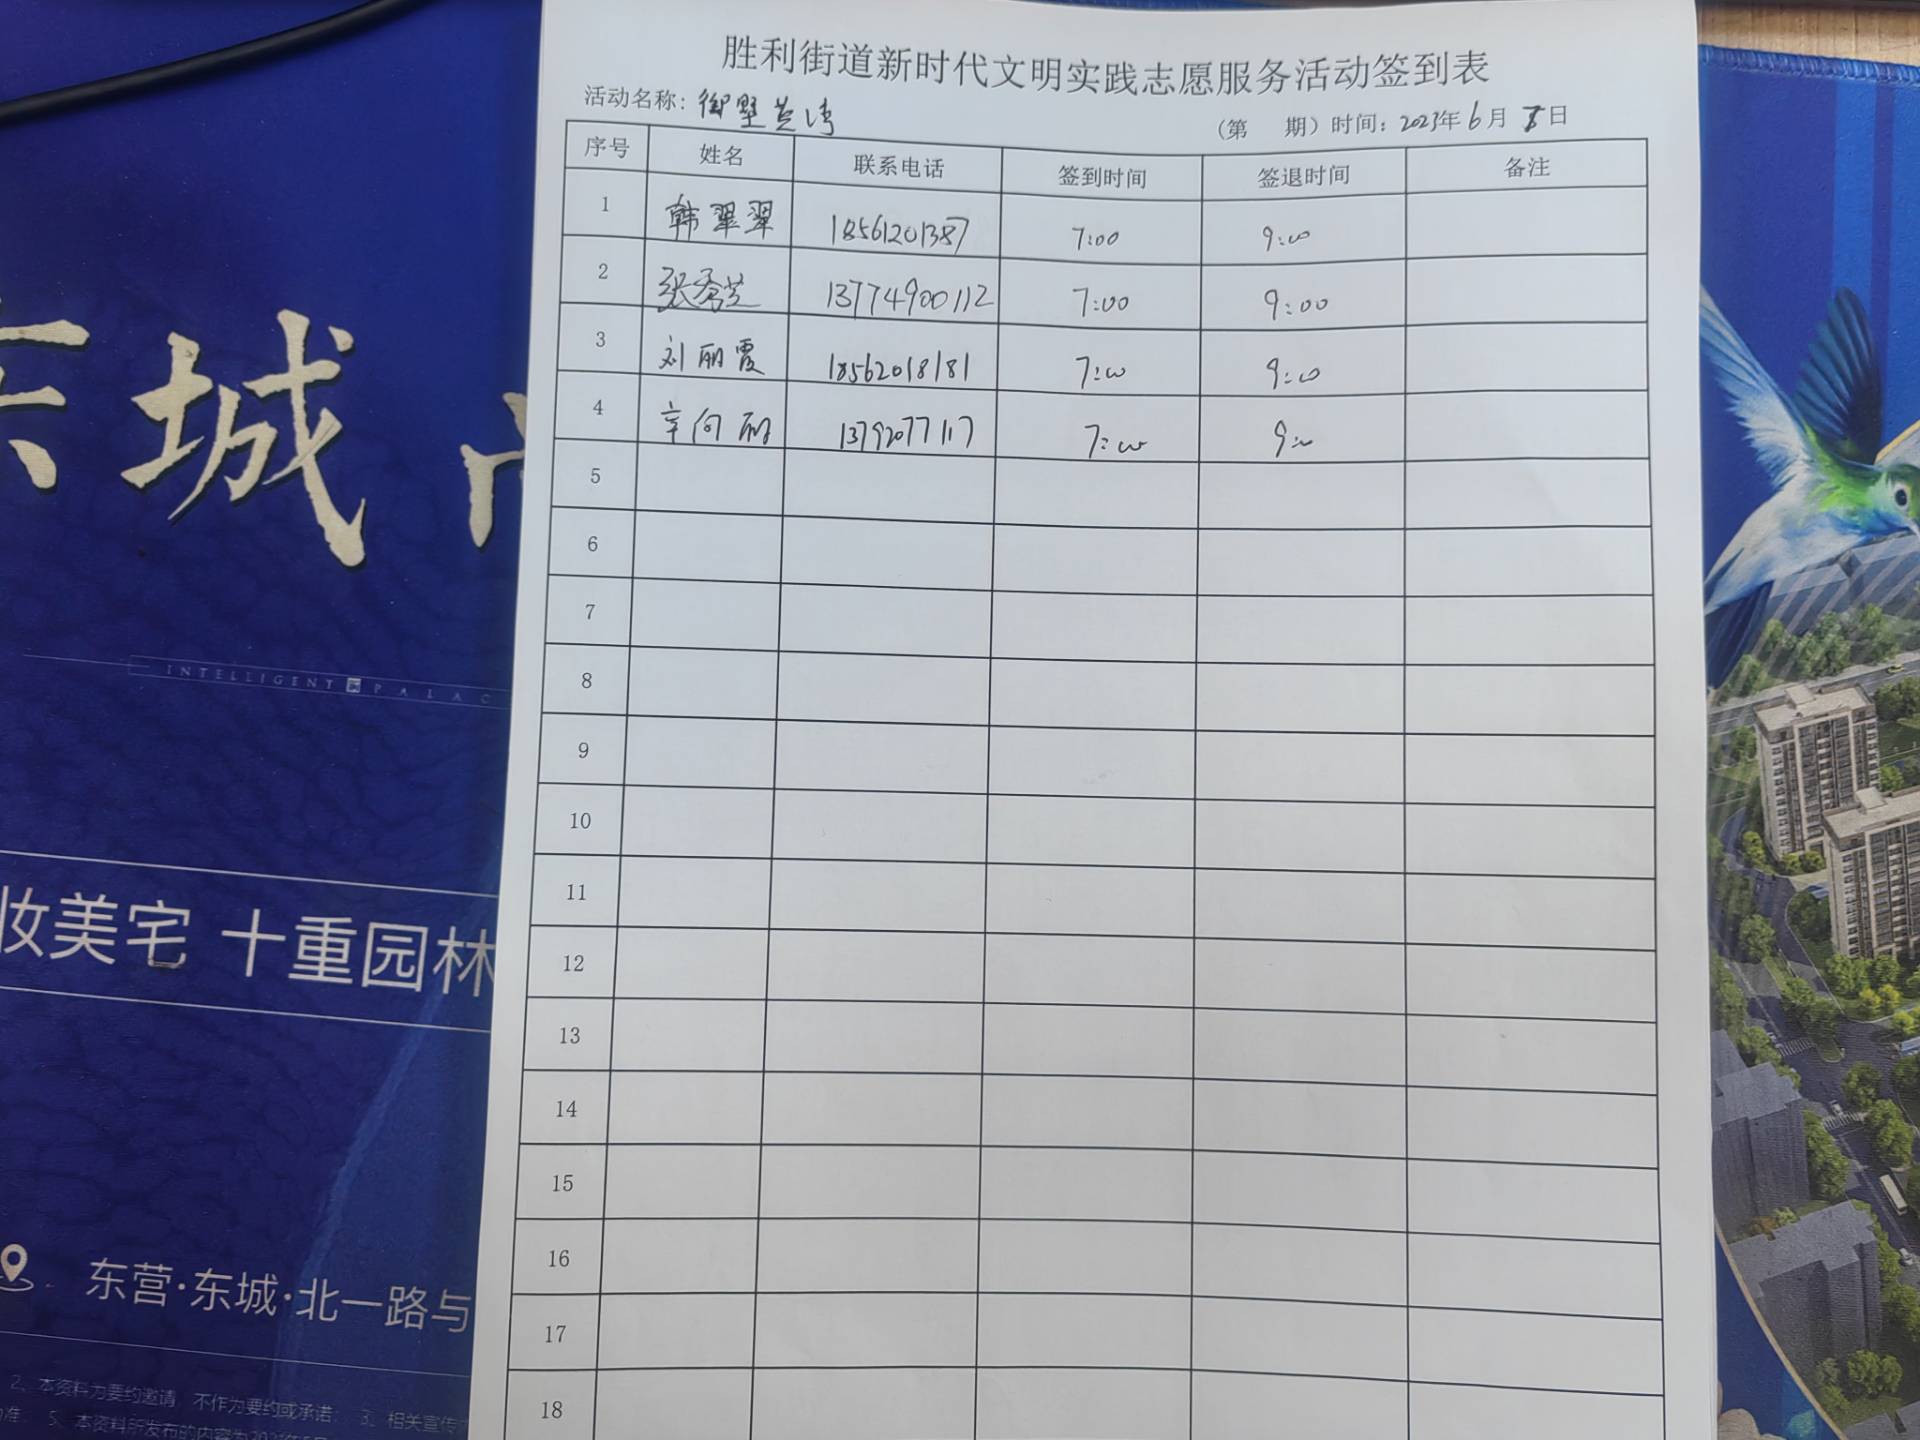 胜利街道新时代文明实践志愿服务活动签到表
活动名称: 御墅兰湾 (第 期) 时间: 2023年6月8日
序号 姓名 联系电话 签到时间 签退时间 备注
1 韩翠翠 18561201387 7:00 9:00
2 张秀兰 13774900112 7:00 9:00
3 刘丽霞 18562018181 7:00 9:00
4 辛向丽 13792077117 7:00 9:00
5
6
7
8
9
10
11
12
13
14
15
16
17
18
东城
INTELLIGENT PALAC
妆美宅 十重园林
东营·东城·北一路与
2、本资料为要约邀请,不作为要约或承诺; 3、相关宣传
准; 5、本资料所发布的内容为202